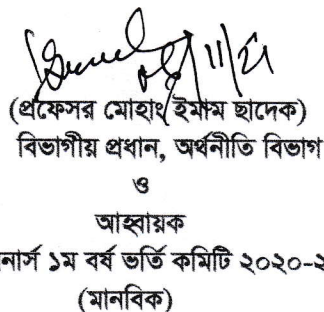 (প্রফেসর মোহাঃ ইমাম ছাদেক)
বিভাগীয় প্রধান, অর্থনীতি বিভাগ
ও
আহ্বায়ক
নার্স ১ম বর্ষ ভর্তি কমিটি ২০২০-২
(মানবিক)